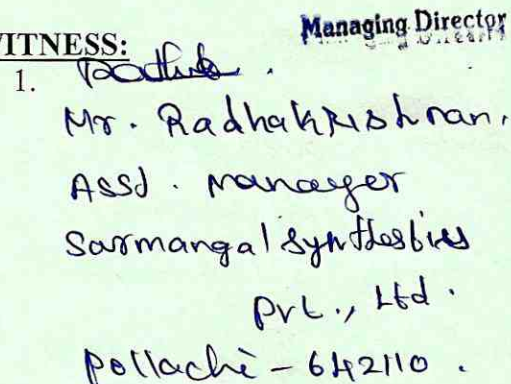 Managing Director
WITNESS:
1.
Mr. Radhakrishnan,
Asst. Manager
Sarmangal Synthesbies
Pvt., Ltd.
Pollachi - 642110.